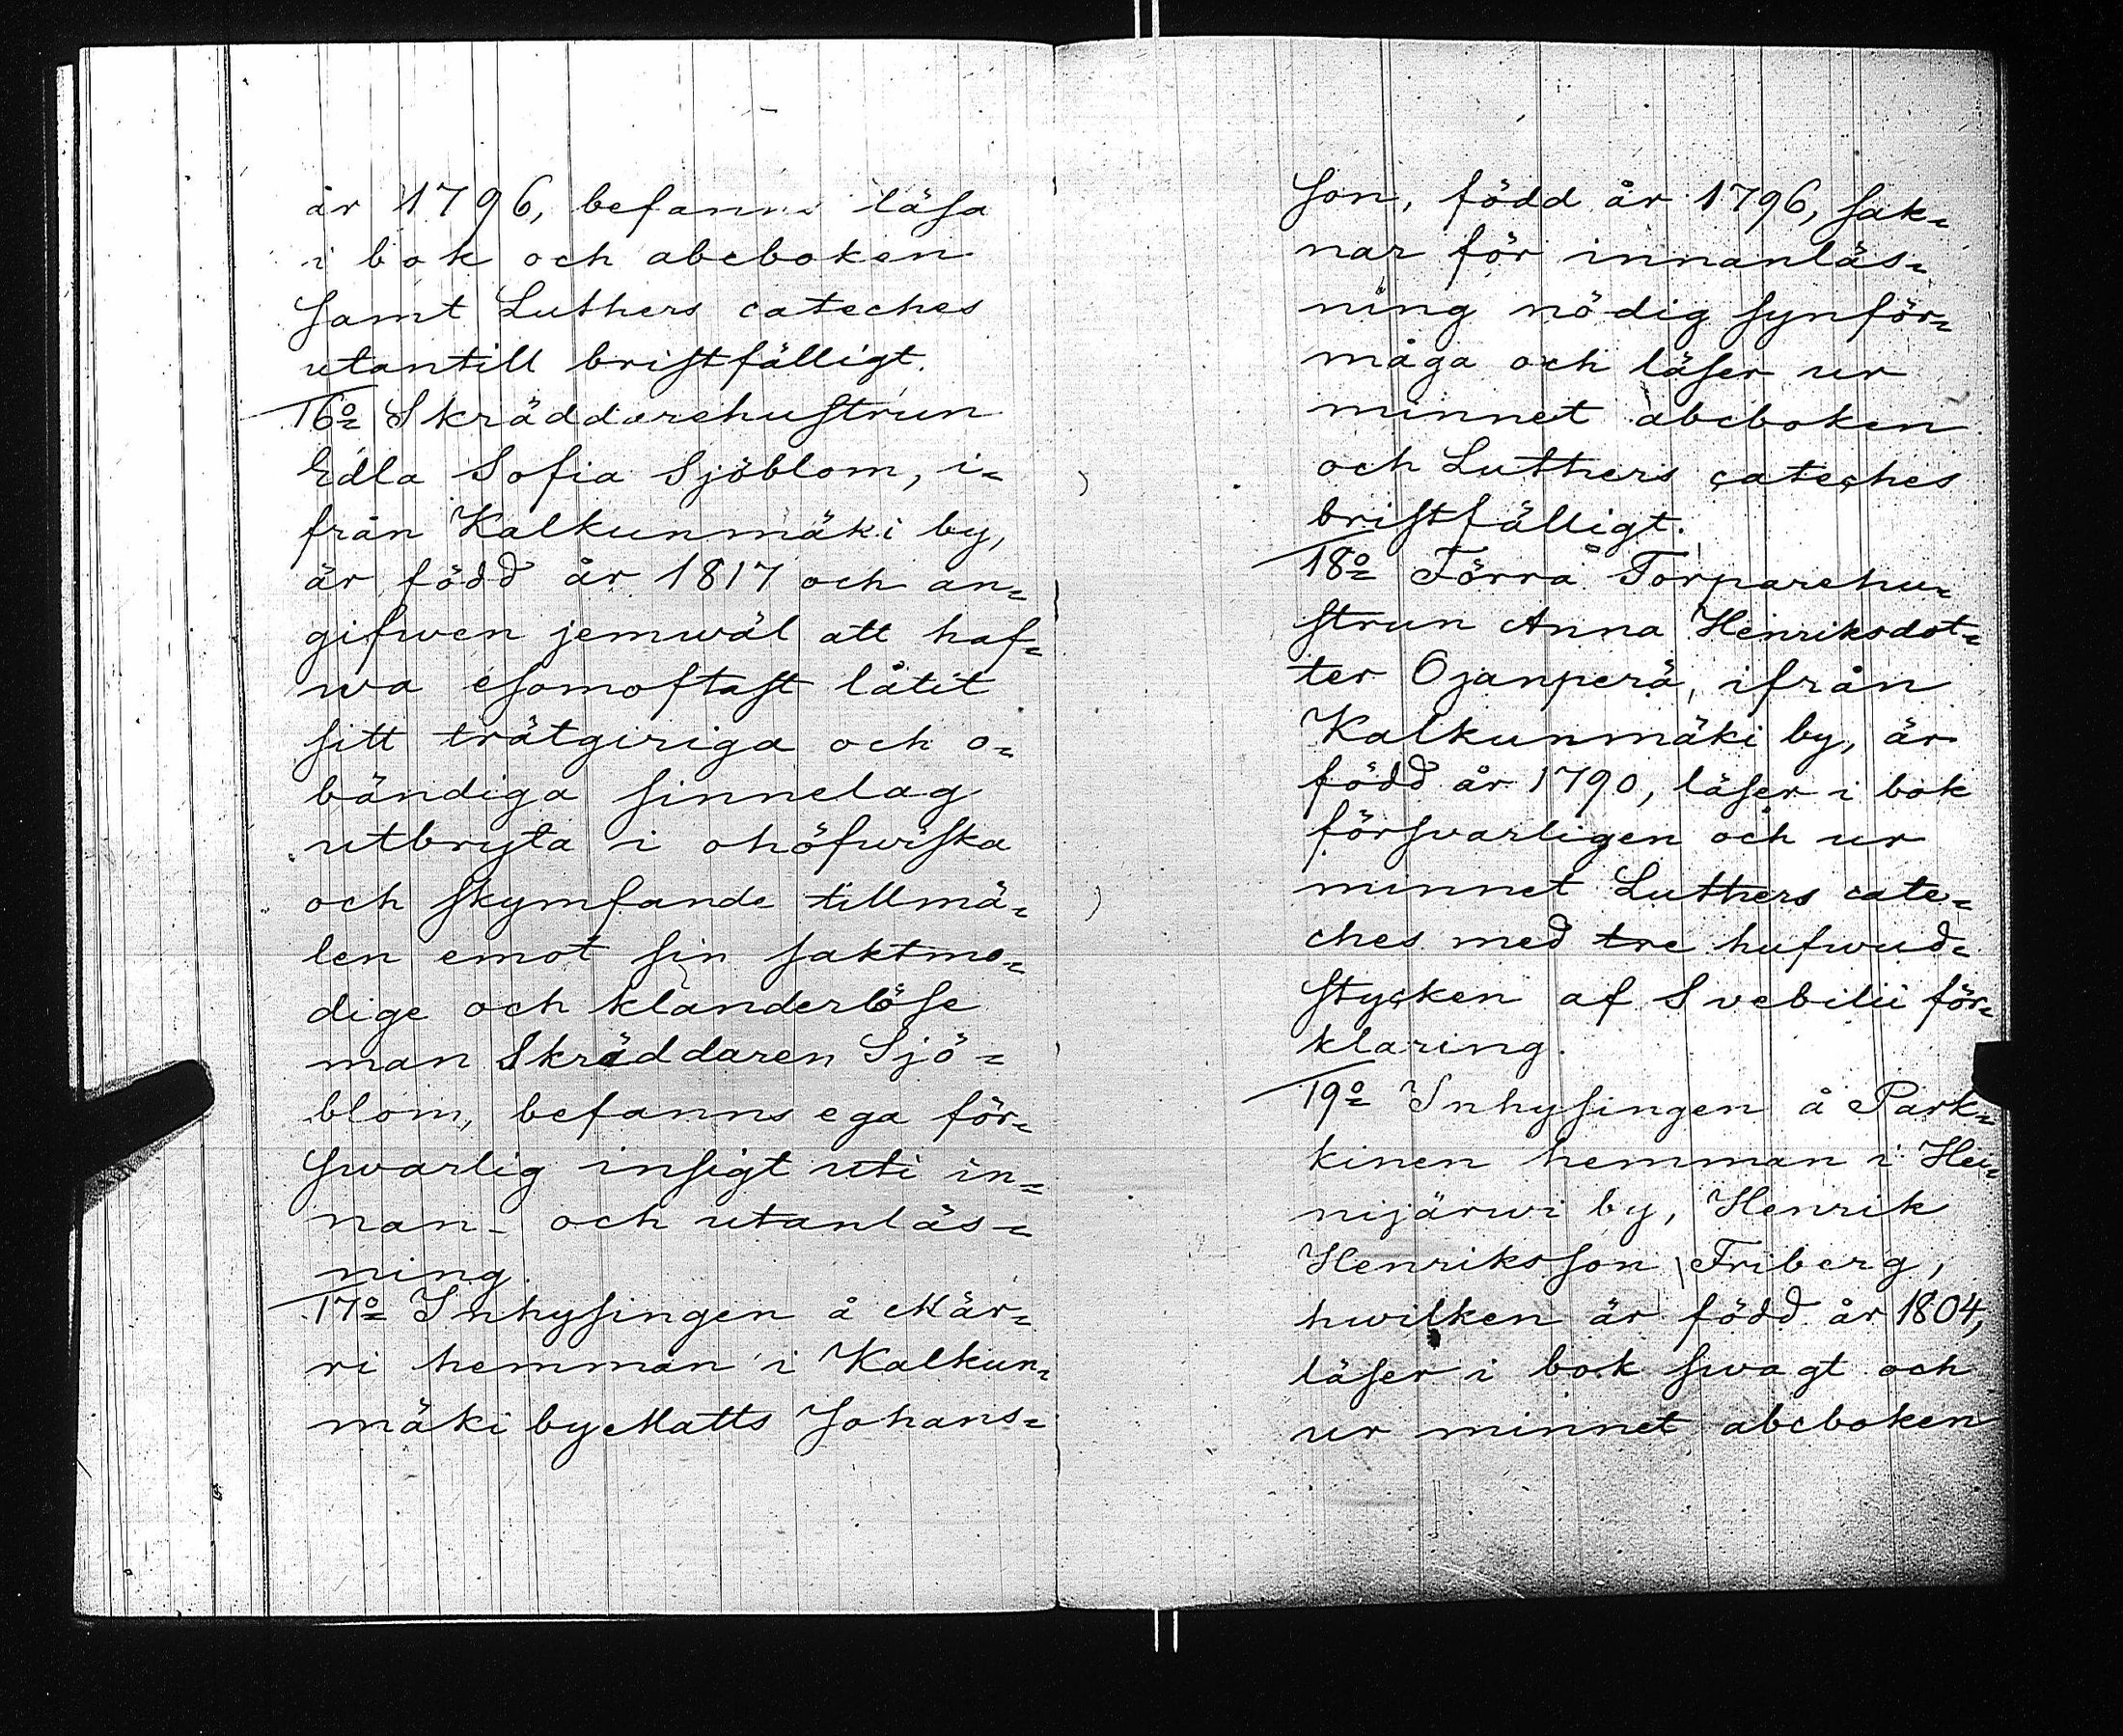 år 1796, befanns läsa
i bok och abcboken
samt Luthers cateches
utantill bristfälligt.
16º Skräddarehustrun
Edla Sofia Sjöblom, i=
från Kalkunmäki by,
är född år 1817 och an=
gifwen jemwäl att haf=
wa esomoftast låtit
sitt trätgiriga och o=
bändiga sinnelag
utbryta i ohöfwiska
och skymfande tillmä=
len emot sin saktmo=
dige och klanderlöse
man Skräddaren Sjö=
blom, befanns ega för=
swarlig insigt uti in=
nan- och utanläs=
ning.
17º Inhysingen å Mär=
ri hemman i Kalkun=
mäki by Matts Johans=
son, född år 1796, sak=
nar för innanläs=
ning nödig synför=
måga och läser ur
minnet abcboken
och Luthers cateches
bristfälligt.
18º Förra Torparehu=
strun Anna Henriksdot=
ter Ojanperä, ifrån
Kalkunmäki by, är
född år 1790, läser i bok
försvarligen och ur
minnet Luthers cate=
ches med tre hufwud=
stycken af Svebilii för=
klaring.
19º Inhysingen å Park=
kinen hemman i Hei=
nijärwi by, Henrik
Henriksson Friberg,
hwilken är född år 1804,
läser i bok swagt och
ur minnet abcboken